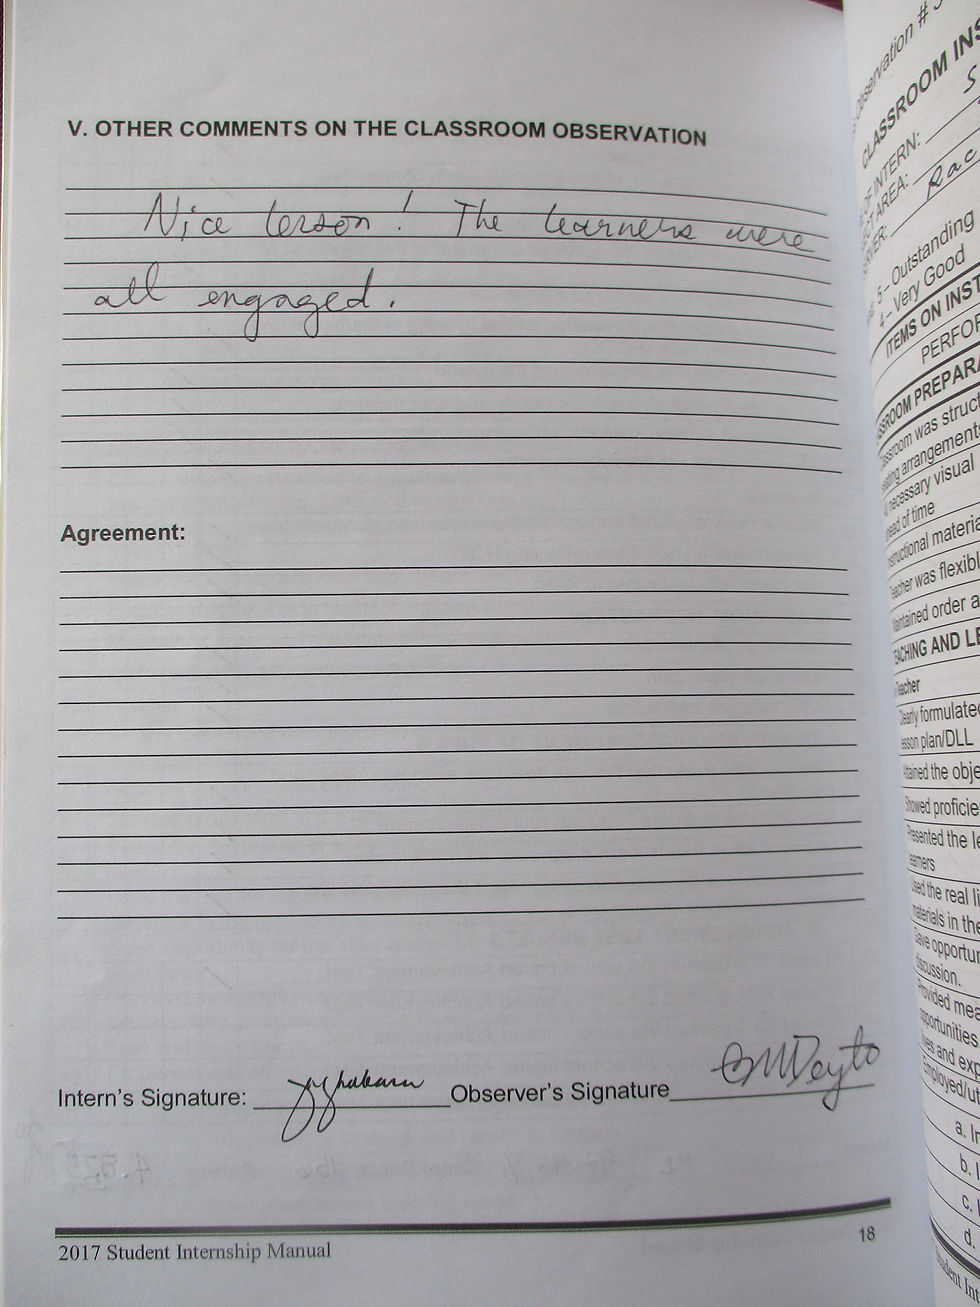 V. OTHER COMMENTS ON THE CLASSROOM OBSERVATION
Nice lesson! The learners were
all engaged.
Agreement:
Intern's Signature: Observer's Signature
2017 Student Internship Manual
18
Observation #
CLASSROOM INS
OF INTERN: S
AREA: Rac
5 – Outstanding
4 – Very Good
ITEMS ON INST
PERFOR
ROOM PREPARA
room was struct
arrangements
necessary visual
ahead of time
structional materia
Teacher was flexibl
Maintained order a
ACHING AND LE
Teacher
Clearly formulated
lesson plan/DLL
Attained the obje
Showed proficie
Presented the le
learners
Used the real li
materials in the
Gave opportun
discussion.
Provided mea
opportunities
and exp
Employed/ut
a. In
b. I
c.
d.
Student Int